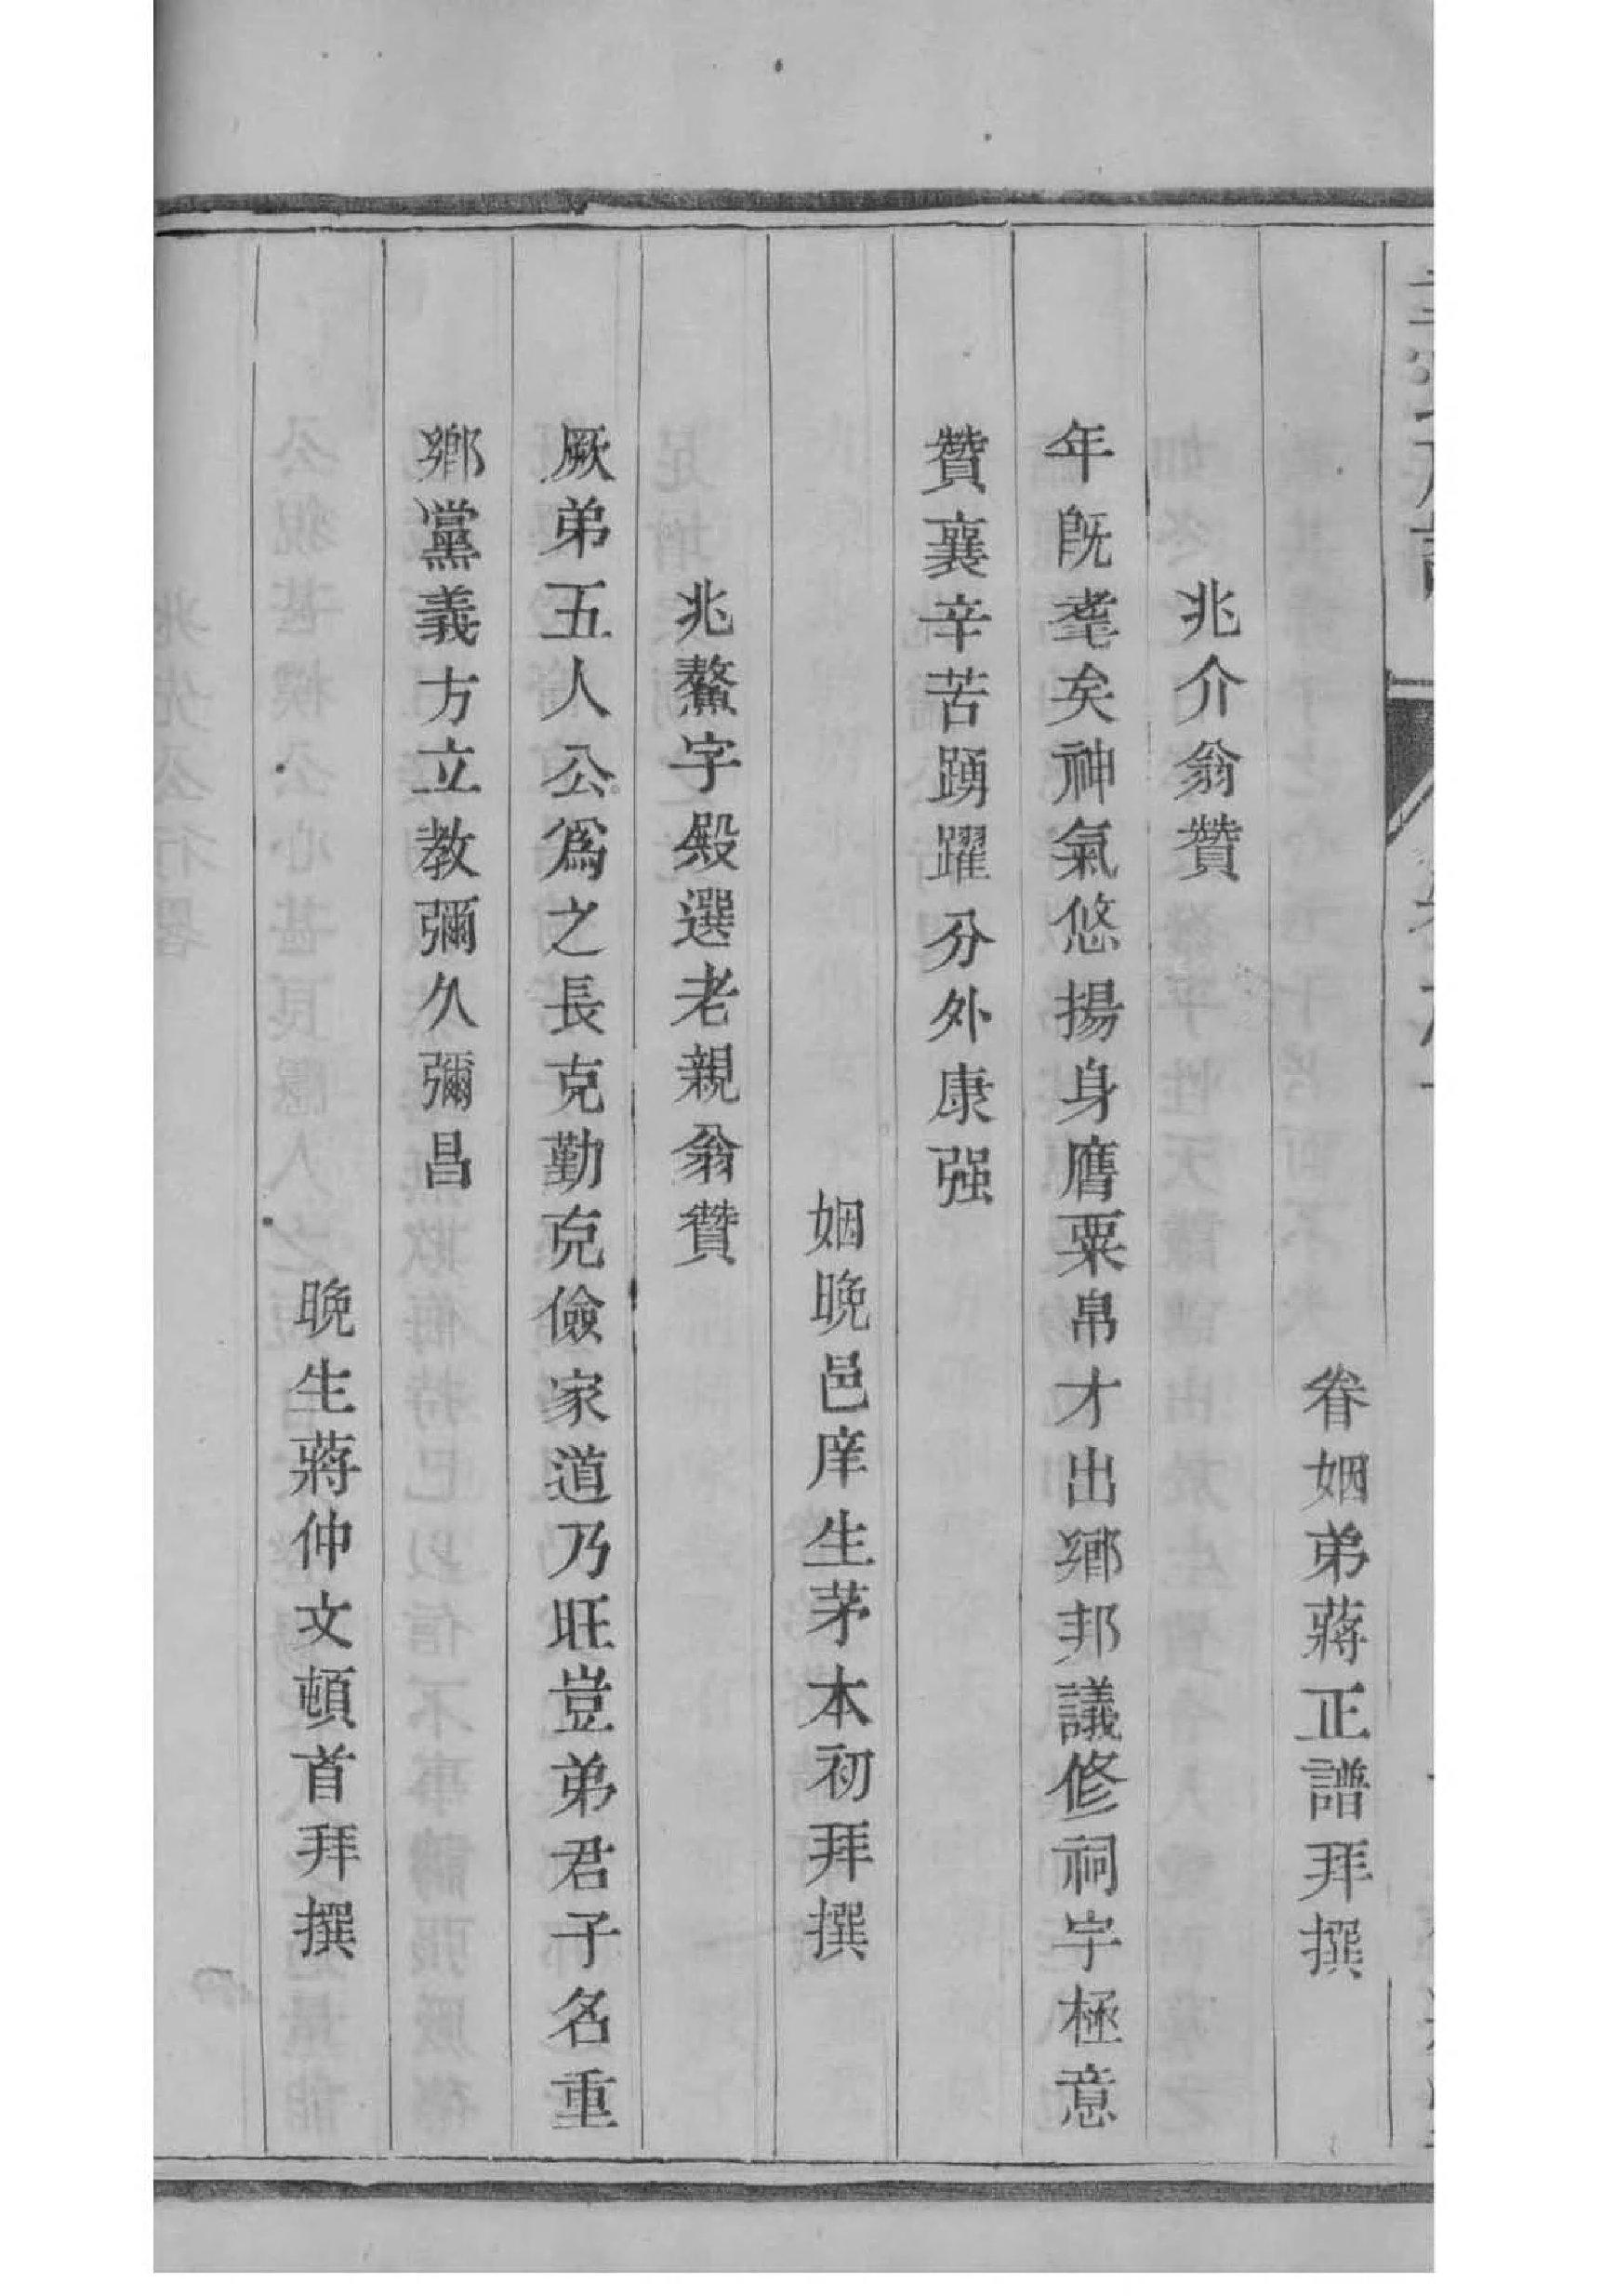 眷姻弟蔣正譜拜撰
兆介翁贊
年既耄矣神氣悠揚身膺粟帛才出鄉邦議修祠宇極意
贊襄辛苦踴躍分外康强
姻晚邑庠生茅本初拜撰
兆鰲字殿選老親翁贊
厥弟五人公爲之長克勤克儉家道乃旺豈弟君子名重
鄉黨義方立教彌久彌昌
晚生蔣仲文頓首拜撰